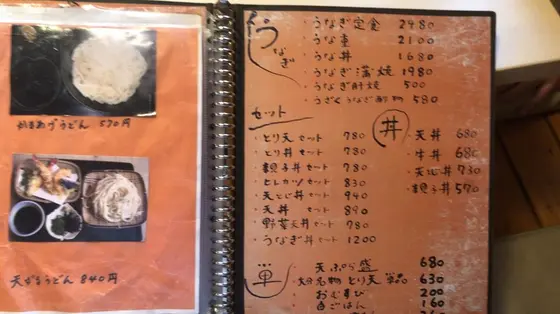 かまあげうどん 570円
天ざるうどん 840円
うなぎ
・うなぎ定食 2480
・うな重 2100
・うな丼 1680
・うなぎ蒲焼 1980
・うなぎ肝焼 500
・うざくうなぎ酢物 580
セット
・とり天セット 780
・とり丼セット 780
・親子丼セット 780
・ヒレカツセット 830
・天とじ丼セット 940
・天丼セット 890
・野菜天丼セット 780
・うなぎ丼セット 1200
丼
・天丼 680
・牛丼 680
・天とじ丼 730
・親子丼 570
単
天ぷら盛 680
大分名物 とり天 単品 630
おむすび 200
白ごはん 160
260